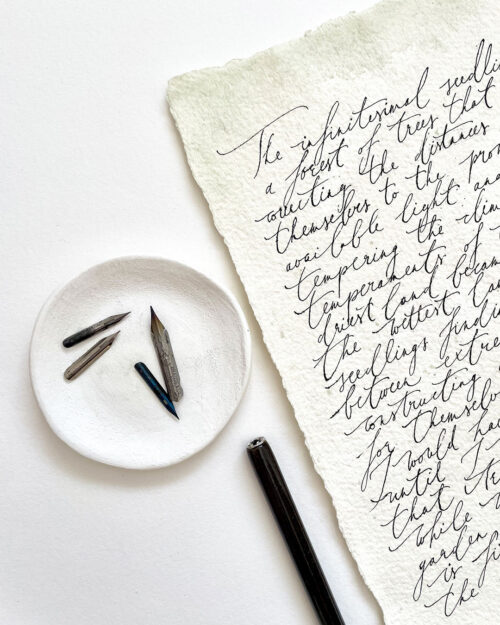 The infinitesimal seedli
a forest of trees that
courting the distances
themselves to the pro
available light and
tempering the clim
temperaments of
driest land becam
the wittest
seedlings findi
between extre
constructing
for themselv
I would ha
until I
that
while
garden
is
the